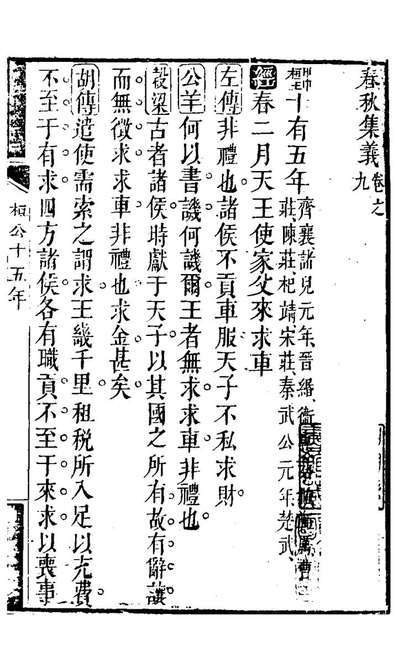 春秋集義卷之九
甲申桓王十有五年齊襄諸兒元年晉緡衛
莊陳莊杞靖宋莊秦武公元年楚武
經春二月天王使家父來求車
左傳非禮也諸侯不貢車服天子不私求財
公羊何以書譏何譏爾王者無求求車非禮也
穀梁古者諸侯時獻于天子以其國之所有故有辭讓
而無徵求求車非禮也求金甚矣
胡傳遣使需索之謂求王畿千里租税所入足以充費
不至于有求四方諸侯各有職貢不至于來求以喪事
桓公十五年